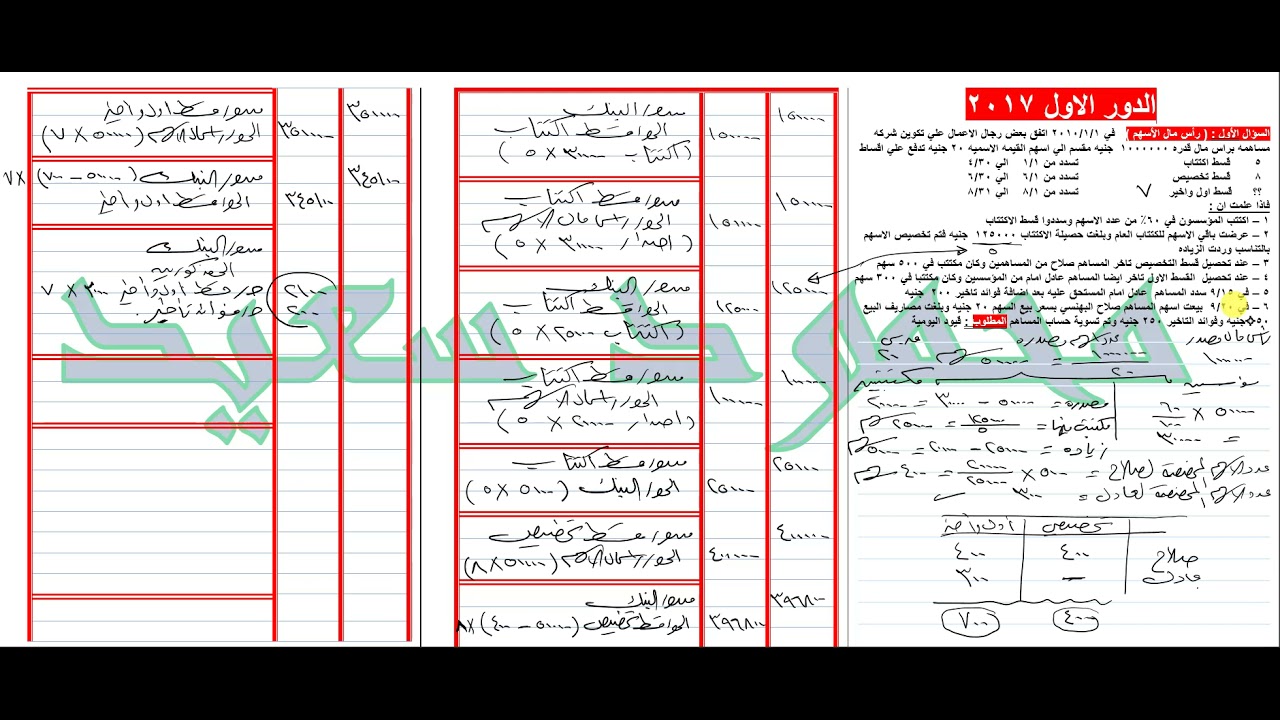 الدور الاول ٢٠١٧
السؤال الأول : ( رأس مال الأسهم ) في ٢٠١٠/١/١ اتفق بعض رجال الاعمال علي تكوين شركه
مساهمه براس مال قدره ١٠٠٠٠٠٠ جنيه مقسم الي اسهم القيمه الاسميه ٢٠ جنيه تدفع علي اقساط
٥ قسط اكتتاب تسدد من ١/١ الي ٤/٣٠
٨ قسط تخصيص تسدد من ٦/١ الي ٦/٣٠
؟؟ قسط اول واخير ٧ تسدد من ٨/١ الي ٨/٣١
فاذا علمت ان :
١ – اكتتب المؤسسون في ٦٠٪ من عدد الاسهم وسددوا قسط الاكتتاب
٢ – عرضت باقي الاسهم للكتتاب العام وبلغت حصيلة الاكتتاب ١٢٥٠٠٠ جنيه فتم تخصيص الاسهم
بالتناسب وردت الزياده
٥
٣ – عند تحصيل قسط التخصيص تاخر المساهم صلاح من المساهمين وكان مكتتب في ٥٠٠ سهم
٤ – عند تحصيل القسط الاول تاخر ايضا المساهم عادل امام من المؤسسين وكان مكتتبا في ٣٠٠ سهم
٥ – في ٩/١٥ سدد المساهم عادل امام المستحق عليه بعد اضافة فوائد تاخير ٢٠٠ جنيه
٦ – في ٩/٢٠ بيعت اسهم المساهم صلاح البهنسي بسعر بيع السهم ٢٠ جنيه وبلغت مصاريف البيع
٥٠ جنيه وفوائد التاخير ٢٥٠ جنيه وتم تسوية حساب المساهم المطلوب : قيود اليومية
مؤسسين
مكتتبين
٥٠٠٠٠ × ٦٠/١٠٠
= ٣٠٠٠٠
مصدره = ٥٠٠٠٠ – ٣٠٠٠٠ = ٢٠٠٠٠
زياده = ٢٥٠٠٠ – ٢٠٠٠٠ = ٥٠٠٠
تخصيص
صلاح ٤٠٠ ٤٠٠
عادل – ٣٠٠
٤٠٠ ٧٠٠
١٥٠٠٠٠ من ح/ البنك
١٥٠٠٠٠ الي ح/ قسط اكتتاب
(اكتتاب ٣٠٠٠٠ × ٥)
١٥٠٠٠٠ من ح/ قسط اكتتاب
١٥٠٠٠٠ الي ح/ راس مال الاسهم
(اصدار ٣٠٠٠٠ × ٥)
١٢٥٠٠٠ من ح/ البنك
١٢٥٠٠٠ الي ح/ قسط اكتتاب
(اكتتاب ٢٥٠٠٠ × ٥)
١٠٠٠٠٠ من ح/ قسط اكتتاب
١٠٠٠٠٠ الي ح/ راس مال الاسهم
(اصدار ٢٠٠٠٠ × ٥)
٢٥٠٠٠ من ح/ قسط اكتتاب
٢٥٠٠٠ الي ح/ البنك (٥٠٠٠ × ٥)
٤٠٠٠٠٠ من ح/ قسط تخصيص
٤٠٠٠٠٠ الي ح/ راس مال الاسهم (٥٠٠٠٠ × ٨)
٣٩٦٨٠٠ من ح/ البنك
٣٩٦٨٠٠ الي ح/ قسط تخصيص (٥٠٠٠٠ – ٤٠٠) × ٨
٣٥٠٠٠٠ من ح/ قسط اول واخير
٣٥٠٠٠٠ الي ح/ راس مال الاسهم (٥٠٠٠٠ × ٧)
٣٤٥١٠٠ من ح/ البنك (٥٠٠٠٠ – ٧٠٠) × ٧
٣٤٥١٠٠ الي ح/ قسط اول واخير
من ح/ البنك
الي مذكورين
٢١٠٠ ح/ قسط اول واخير ٣٠٠ × ٧
٢٠٠ ح/ فوائد تاخير
محمود سعيد